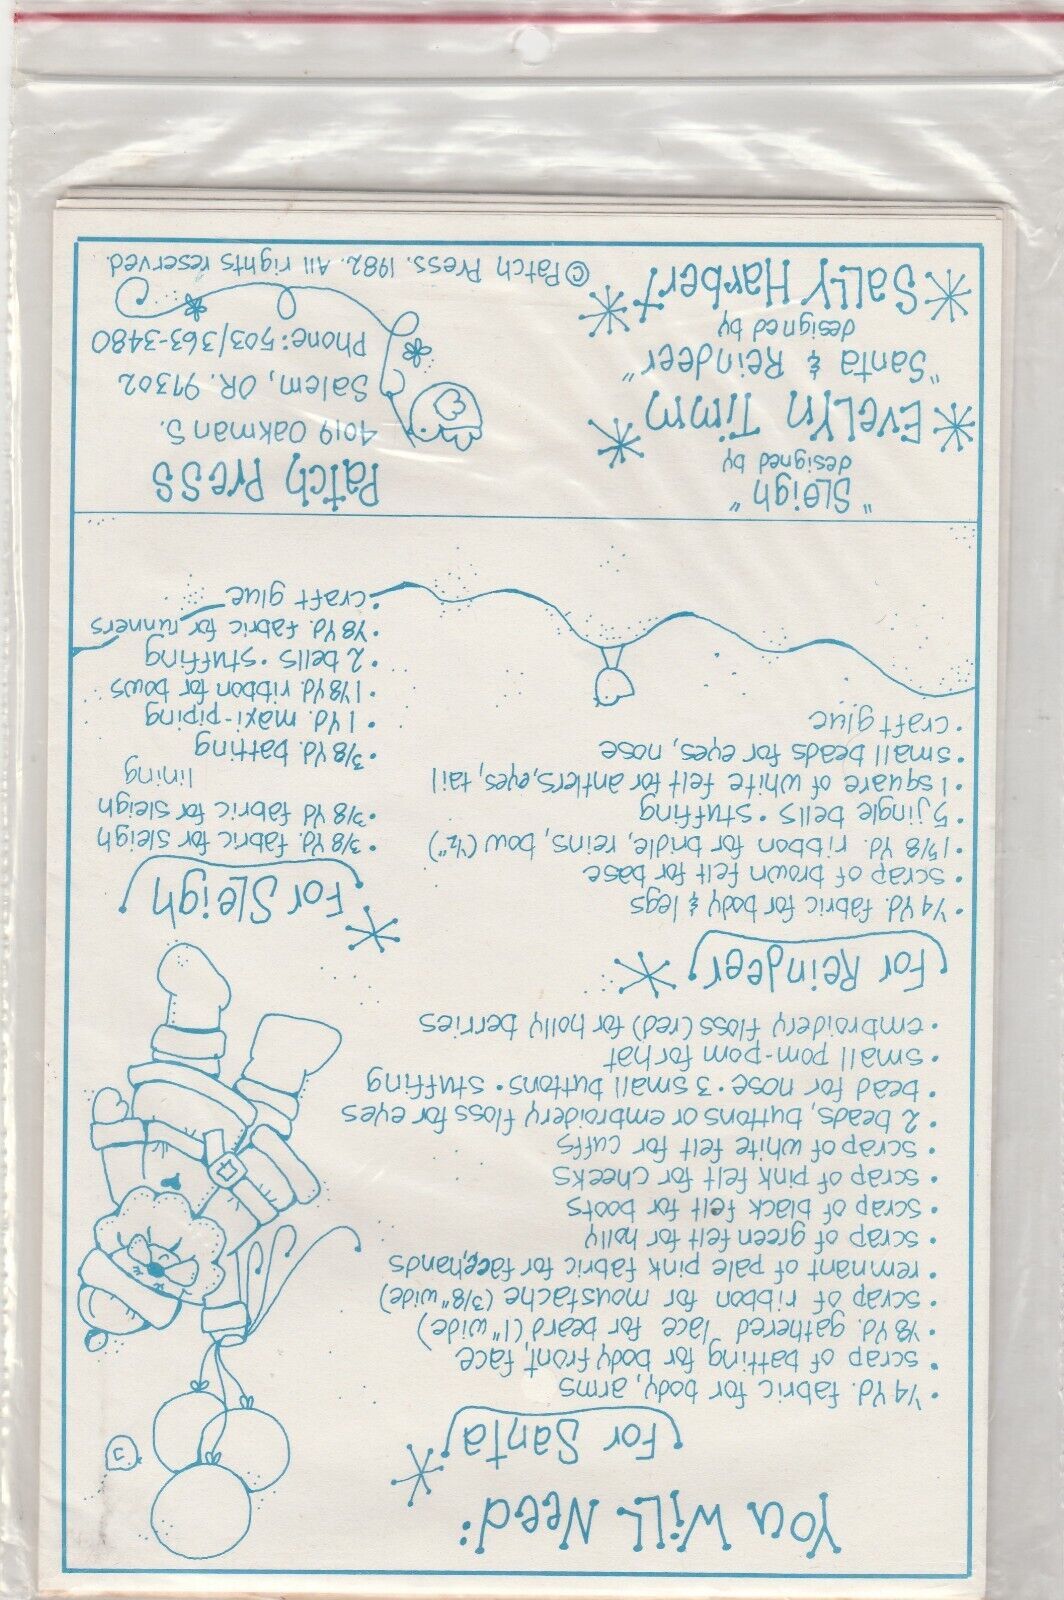 You Will Need:
For Santa
• 1/4 Yd. fabric for body, arms
• scrap of batting for body front, face
• 1/8 Yd. gathered lace for beard (1" wide)
• scrap of ribbon for moustache (3/8" wide)
• remnant of pale pink fabric for face, hands
• scrap of green felt for holly
• scrap of black felt for boots
• scrap of pink felt for cheeks
• scrap of white felt for cuffs
• 2 beads, buttons or embroidery floss for eyes
• bead for nose • 3 small buttons • stuffing
• small pom-pom for hat
• embroidery floss (red) for holly berries
For Reindeer
• 1/4 Yd. fabric for body & legs
• scrap of brown felt for base
• 1 5/8 Yd. ribbon for bridle, reins, bow (1/2")
• 5 jingle bells • stuffing
• 1 square of white felt for antlers, eyes, tail
• small beads for eyes, nose
• craft glue
For Sleigh
• 3/8 Yd. fabric for sleigh
• 3/8 Yd fabric for sleigh
lining
• 3/8 Yd. batting
• 1 Yd. maxi-piping
• 1 1/8 Yd. ribbon for bows
• 2 bells • stuffing
• 1/8 Yd. fabric for runners
• craft glue
"Sleigh"
designed by
Evelyn Timm
"Santa & Reindeer"
designed by
Sally Harbert
Patch Press
4019 Oakman S.
Salem, OR. 97302
Phone: 503/363-3480
©Patch Press. 1982. All rights reserved.